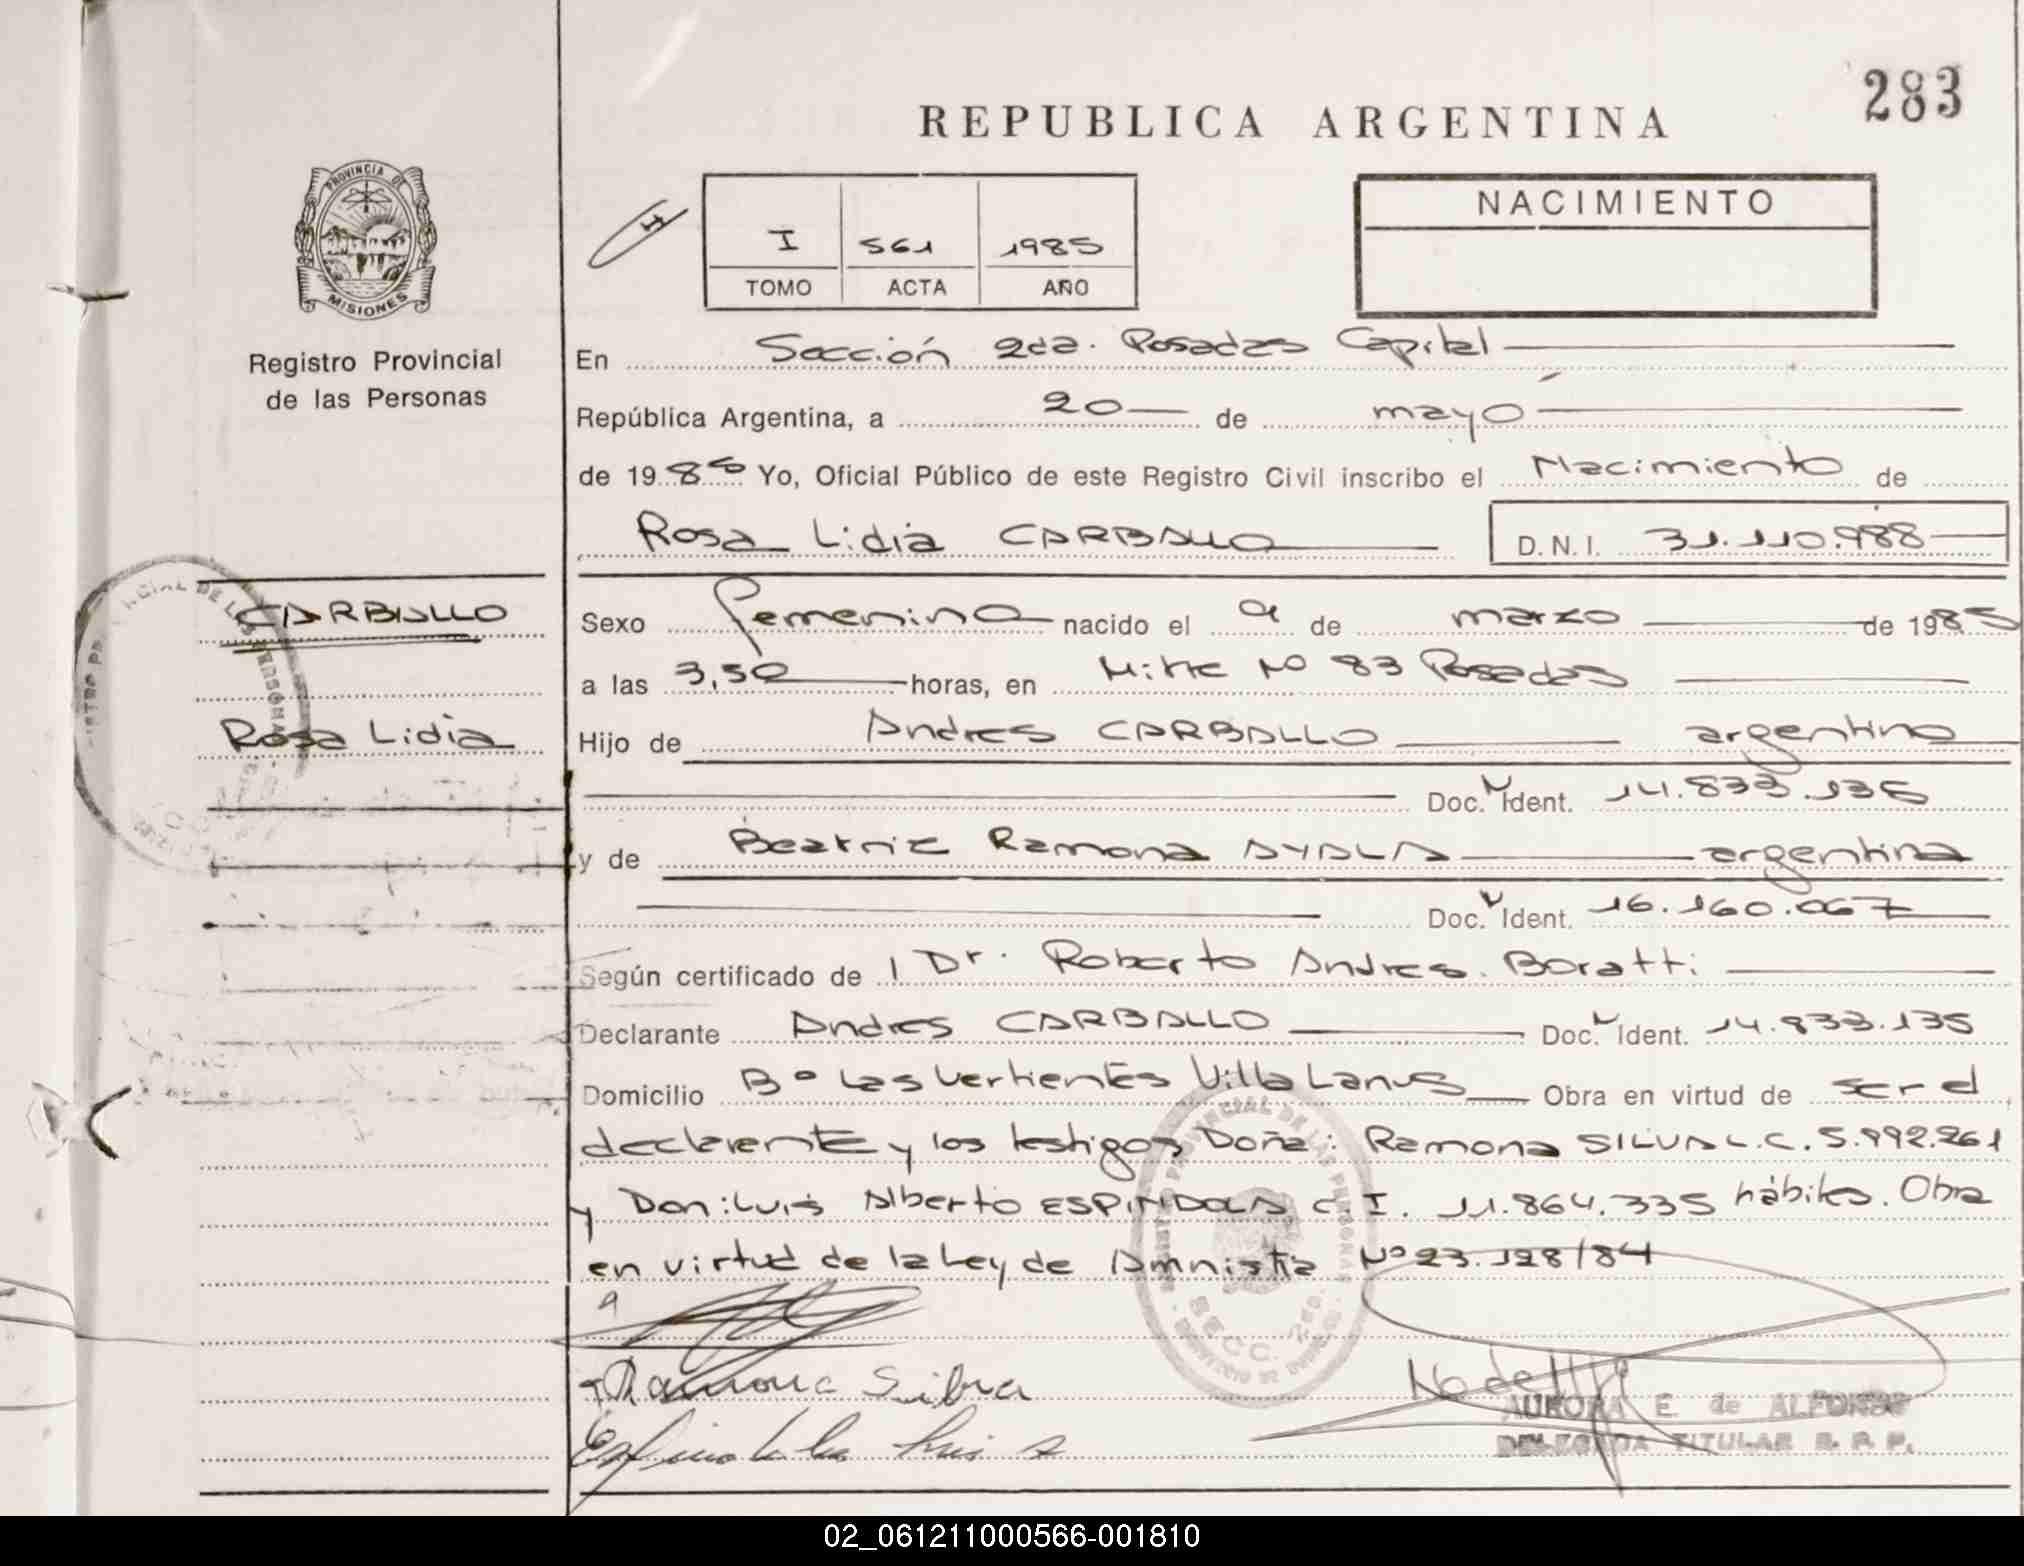 283
REPUBLICA ARGENTINA
PROVINCIA DE
MISIONES
Registro Provincial
de las Personas
I 561 1985
TOMO ACTA AÑO
NACIMIENTO
En Sección 2da. Posadas Capital
República Argentina, a 20 de mayo
de 1985 Yo, Oficial Público de este Registro Civil inscribo el Nacimiento de
Rosa Lidia CARBALLO D.N.I. 31.110.988
CARBALLO
Rosa Lidia
Sexo femenino nacido el 9 de marzo de 1985
a las 3,50 horas, en Mitre Nº 83 Posadas
Hijo de Andres CARBALLO argentino
Doc. Ident. 14.833.135
y de Beatriz Ramona AYALA argentina
Doc. Ident. 16.160.067
Según certificado de Dr. Roberto Andres Boratti
Declarante Andres CARBALLO Doc. Ident. 14.833.135
Domicilio Bº Las Vertientes Villa Lanus Obra en virtud de ser el
declarante y los testigos Doña: Ramona SILVA L.C. 5.992.261
y Don: Luis Alberto ESPINDOLA C.I. 11.864.335 hábiles. Obra
en virtud de la Ley de Amnistia Nº 23.128/84
Ramona Silva
AURORA E. de ALFONSO
DELEGADA TITULAR R. P. P.
02_061211000566-001810